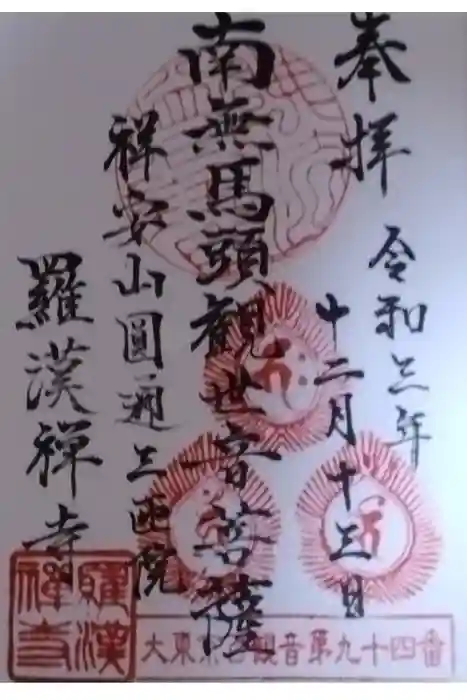 奉拝
令和三年
十二月十三日
南無馬頭観世音菩薩
祥安山圓通三匝院
羅漢禅寺
大東京百観音第九十四番
羅漢
禅寺